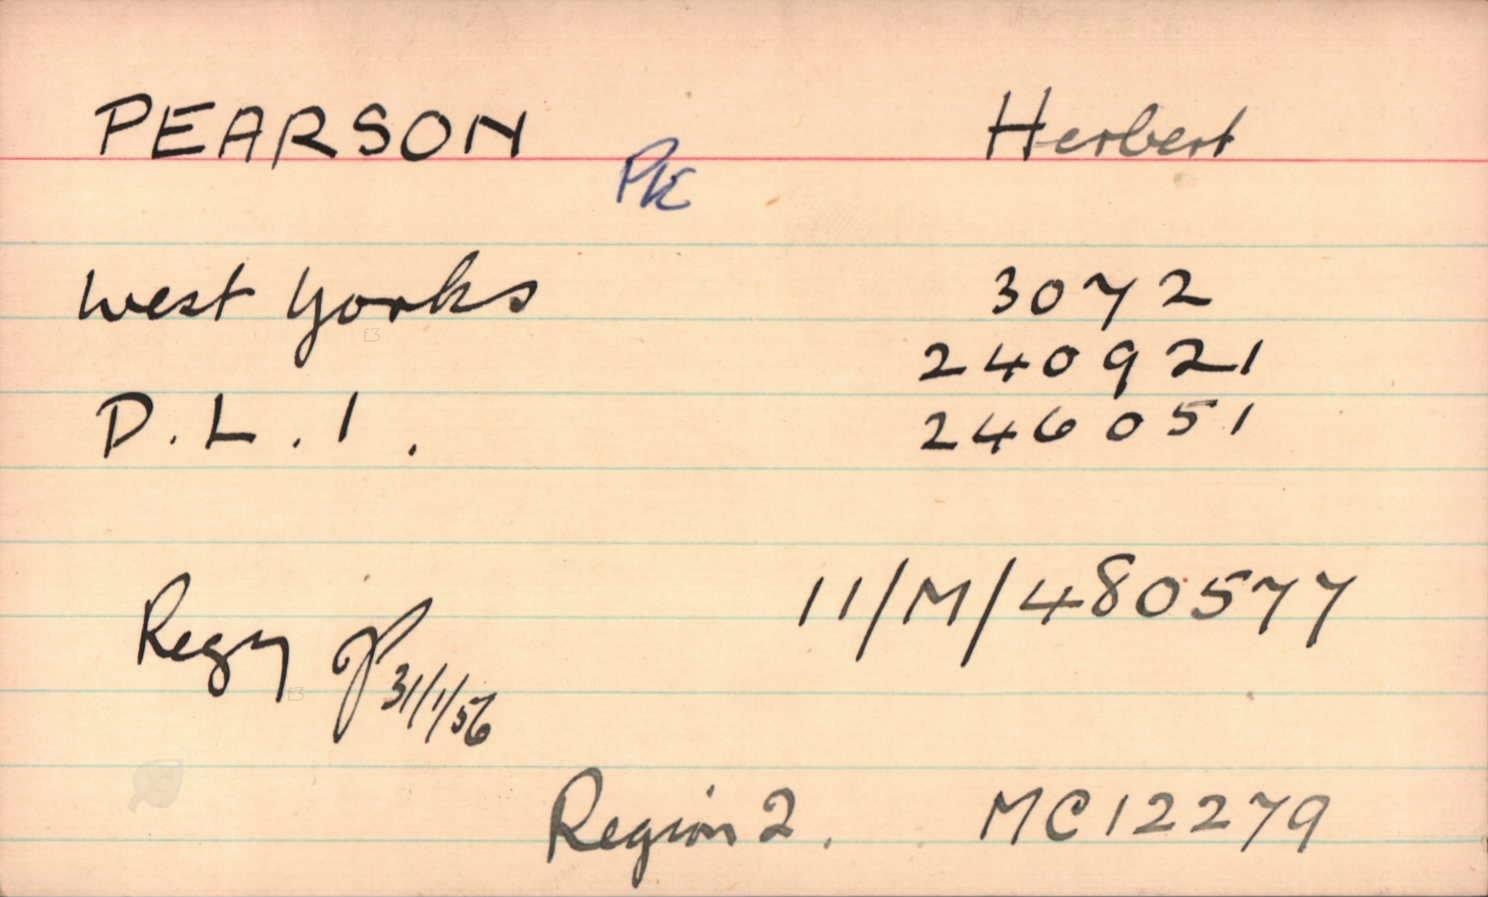 PEARSON Herbert
PK
West Yorks 3072
240921
D.L.I. 246051
11/M/480577
Regy
31/1/56
Region 2. MC12279